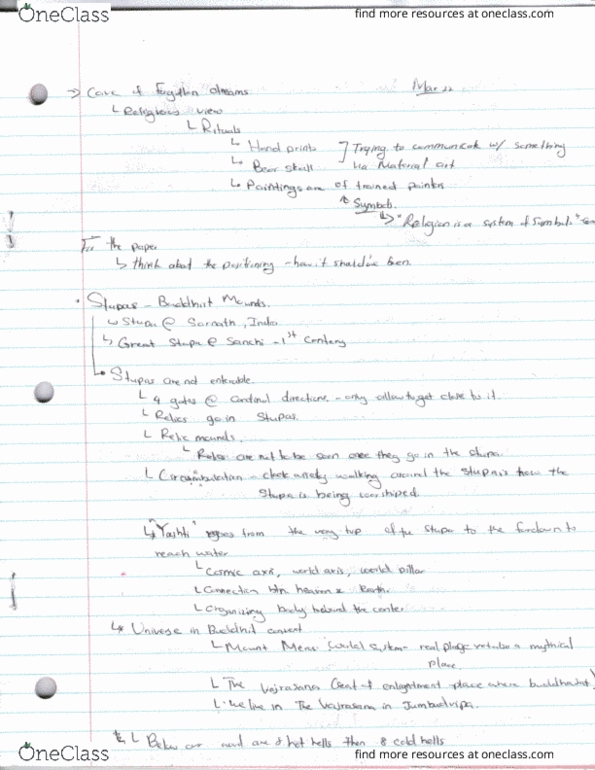 OneClass
find more resources at oneclass.com
→ Cave of Forgotten dreams
Mar 22
↳ Religious view
↳ Rituals
↳ Hand prints ] Trying to communicate w/ something
↳ Bear skull via Material art
↳ Paintings are of trained painter
Symbols.
↳ "Religion is a system of Symbols"
For the paper
↳ think about the positioning - how it should've been
• Stupas - Buddhist Mounds.
↳ Stupa @ Sarnath, India
↳ Great Stupa @ Sanchi - 1st Century
↳ Stupas are not enterable.
↳ 4 gates @ Cardinal directions. - only allow to get close to it.
↳ Relics go in Stupas.
↳ Relic mounds.
↳ Relics are not to be seen once they go in the stupa.
↳ Circumambulation - clockwisely walking around the stupa is how the
Stupa is being worshiped.
↳ "Yashti" from the very top of the stupa to the to
reach water
↳ Cosmic axis, world axis, world pillar
↳ Connection btn heaven & Earth.
↳ Organizing body behind the center
↳ Universe in Buddhist
↳ Mount Meru real mythical
place
↳ The Vajrasana enlightment place where
↳ We live in The Vajrasana in
↳ Below our are 8 hot hells then 8 cold hells
OneClass
find more resources at oneclass.com